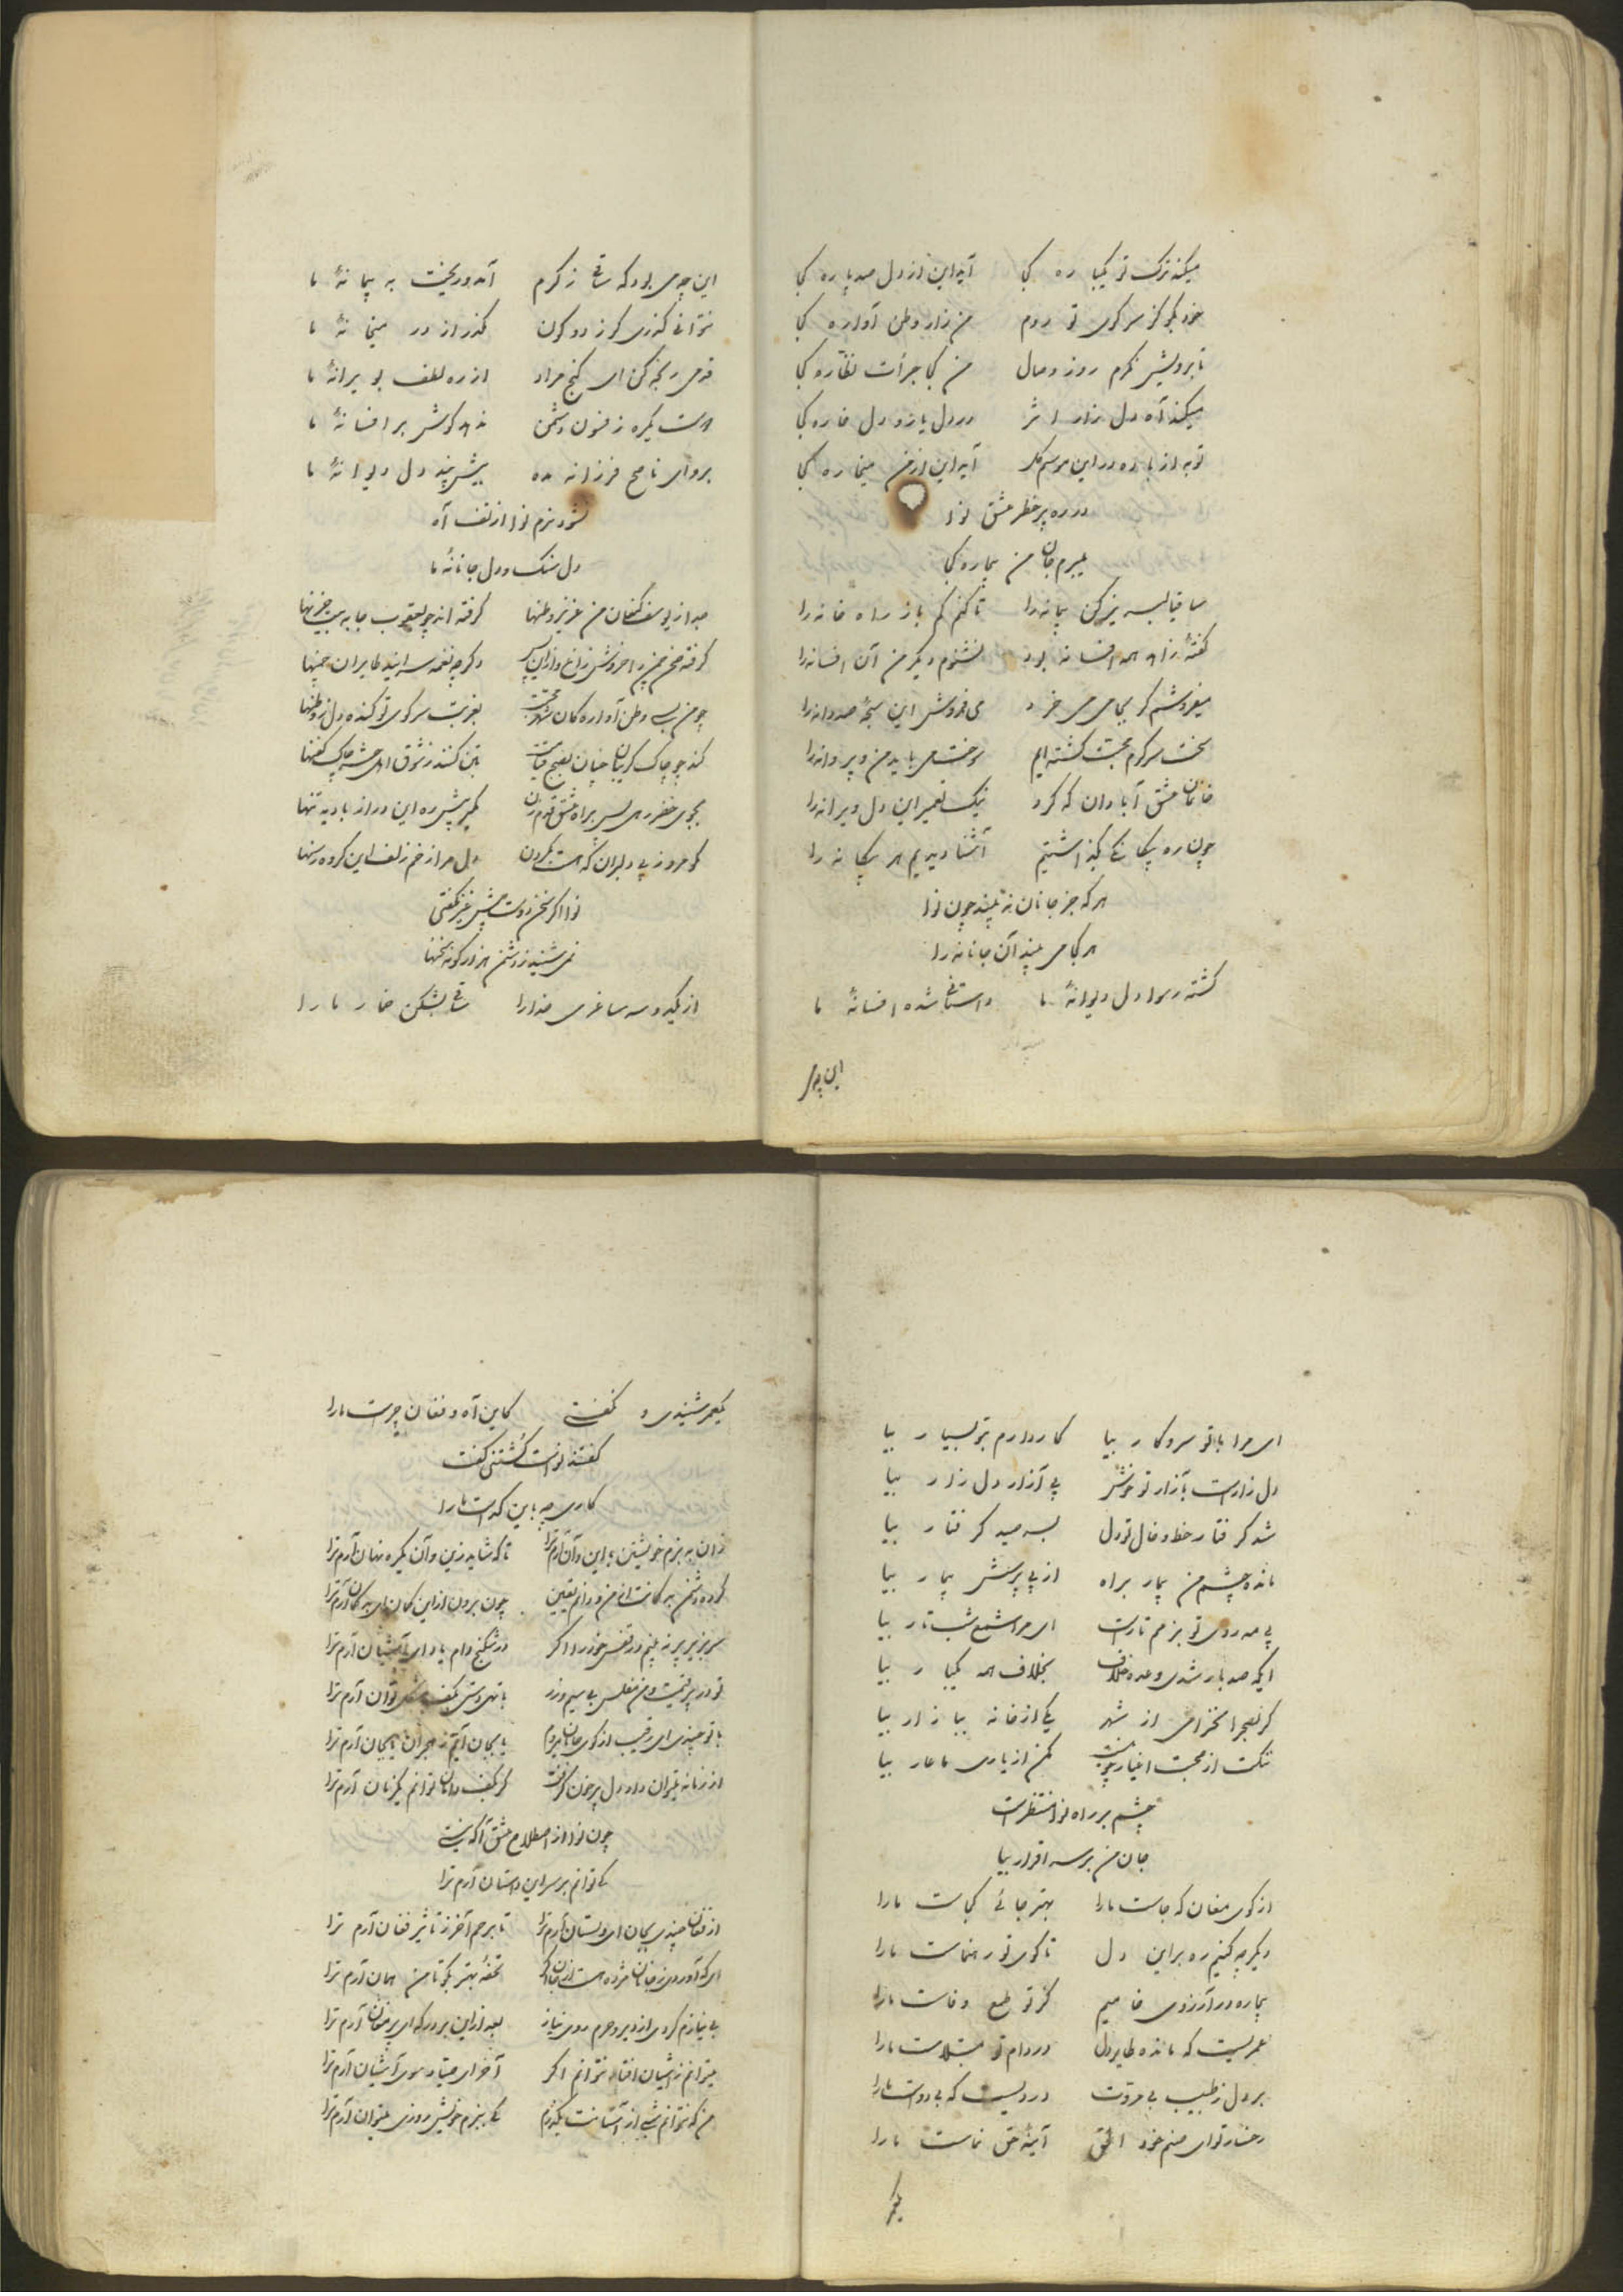 میکند ترک تو یکباره کجا آید این از دل صد پاره کجا
خود بگو کز سر کوی تو روم من زار وطن آواره کجا
تا برویش نگرم روز وصال من کجا جرأت نظاره کجا
میکند آه دل زار اثر در دل یار و دل خاره کجا
توبه از باده در این موسم گل آید این از من میخاره کجا
در ره پر خطر عشق نوا
میبرم جان من بیچاره کجا
ساقیا لبریز کن پیمانه را تا کنم گم باز راه خانه را
گفتهٔ زاهد افسانه بود نشنوم دیگر من آن افسانه را
میفروشم گر بجامی می خرد می فروش این سبحهٔ صد دانه را
سخت سرگرم محبت گشته ایم سوختن باید من و پروانه را
خانمان عشق آبادان که کرد نیک تعمیر این دل ویرانه را
چون ره بیگانگی بگذاشتیم آشنا دیدیم هر بیگانه را
هر که جز جانان نه بیند چون نوا
هر کجا می بیند آن جانانه را
گشته رسوا دل دیوانهٔ ما داستانی شده افسانهٔ ما
این چه می
این چه می بود که ساقی ز کرم آمد و ریخت به پیمانهٔ ما
نتوانی گذری کز دو کون گذر از در میخانهٔ ما
قدمی رنجه کن ای گنج مراد از ره لطف بویرانهٔ ما
هست یکره ز فسون دشمن ندهد گوش بر افسانهٔ ما
برو ای ناصح فرزانه مده بیش پند دل دیوانهٔ ما
نشود نرم نوا از تف آه
دل سنگ و دل جانانهٔ ما
جدا از یوسف کنعان من عزیز وطنها گرفته اند چو یعقوب جا به بیت حزنها
گرفته صحن چمن را خروش زاغ و از این پس دگر چه نغمه سرایند طایران چمنها
چو من ز بس وطن آواره کان شهر محبت بغربت سر کوی تو کنده دل ز وطنها
کند چو چاک گریبان جنان بصبح قیامت بتن کنند ز شوق اهل حشر چاک کفنها
بجوی خضر رهی پس براه عشق قدم زن مگیر پیش ره این دراز بادیه تنها
گو امروز پی دلبران که هست بگردن دل مرا ز خم زلف این گروه رسنها
نوا اگر سخن دوست پیش غیر نگفتی
نمی شنید ز دشمن هزار گونه سخنها
از یک دو سه ساغری خدا را ساقی بشکن خمار ما را
ای مرا با تو سر و کار بیا کار دارم بتو بسیار بیا
دل زار است بآزار تو خوش پی آزار دل زار بیا
شد گرفتار خط و خال تو دل بسر صید گرفتار بیا
مانده چشم من بیمار براه از پی پرسش بیمار بیا
بی مه روی تو بزمم تار است ای مرا شمع شب تار بیا
ایکه صد بار شدی وعده خلاف بخلاف همه یکبار بیا
گر بصحرا نخرامی از شهر یکی از خانه ببازار بیا
ننگت از صحبت اغیار چو نیست مکن از یاری ما عار بیا
چشم بر راه نوا منتظر است
جان من بر سر اقرار بیا
از کوی مغان که جاست ما را بهتر جائی کجاست ما را
دیگر چه کنیم رهبر این دل تا کوی تو رهنماست ما را
بیچاره در آرزوی خامیم کز تو طمع وفاست ما را
عمریست که مانده طایر دل در دام تو مبتلاست ما را
بر دل ز طبیب بی مروت دردیست که بی دواست ما را
رخسار تو ای صنم خود الحق آیینهٔ حق نماست ما را
یکعمر
یکعمر شنیدی و نگفتی کاین آه و فغان چراست ما را
گفتند نواست کشتنی گفت
کاری چه باین گداست ما را
زان به بزم خویشتن با این و آن آرم ترا تا که شاید زین و آن یکره نهان آرم ترا
کرده دشمن بدگمانت از من و دانم یقین چون برون از این گمان ای بدگمان آرم ترا
سر بزیر پر نه بینم در قفس خود را اگر در شکنج دام یاد ای آشیان آرم ترا
تو در پر قیمت و من مفلس بی سیم و زر با تهی دستی بکف مشکل توان آرم ترا
با تو چندی ای رقیب از کوی جانان میروم یا بجان آیم ز هجران یا بجان آرم ترا
از زمانه بتوان داد دل پر خون گرفت گر بکف دامان توانم یکزمان آرم ترا
چون نوا از اصطلاح عشق آگه نیستی
کی توانم بر سر این داستان آرم ترا
از فغان چندی بجان ای دلستان آرم ترا تا برحم آخر ز تأثیر فغان آرم ترا
ای که آوردی ز جانان مژده هست از جان اگر تحفهٔ بهتر بگو تا من همان آرم ترا
بی نیازم کردی از دیر و حرم روی نیاز بعد از این بر درگه ای پیر مغان آرم ترا
میتوانم ز آشیان افتاد نتوانم اگر آخر ای صیاد سوی آشیان آرم ترا
من که نتوانم شبی از آستانت بگذرم کی ببزم خویش روزی میتوان آرم ترا